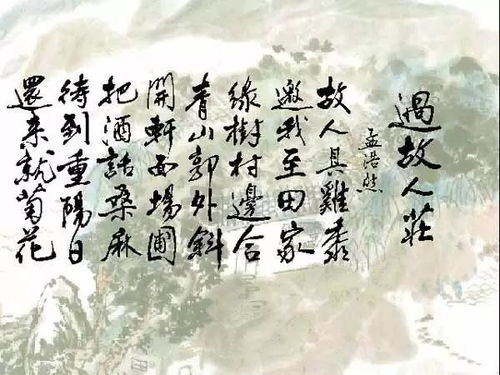 過故人莊
孟浩然
故人具雞黍
邀我至田家
綠樹村邊合
青山郭外斜
開軒面場圃
把酒話桑麻
待到重陽日
還來就菊花